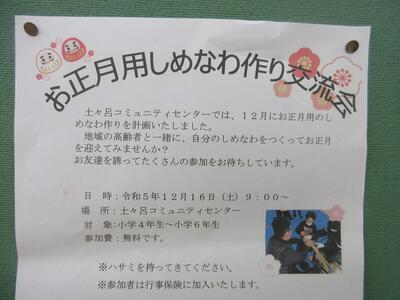 お正月用しめなわ作り交流会
土々呂コミュニティセンターでは、12月にお正月用のし
めなわ作りを計画いたしました。
地域の高齢者と一緒に、自分のしめなわをつくってお正月
を迎えてみませんか?
お友達を誘ってたくさんの参加をお待ちしています。
日 時:令和5年12月16日(土)9:00~
場 所:土々呂コミュニティセンター
対 象:小学4年生~小学6年生
参加費:無料です。
※ハサミを持ってきてください。
※参加者は行事保険に加入いたします。